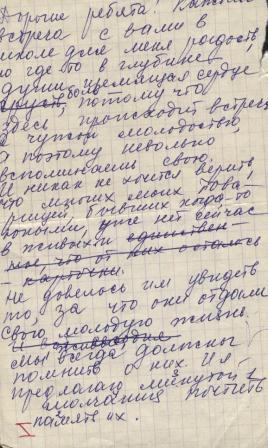 Дорогие ребята! Каждая
встреча с вами в
школе для меня радость,
но где то в глубине
души щемящая сердце
грусть боль, потому что
здесь происходит встреча
с чужой молодостью
а поэтому невольно
вспоминаешь свою.
И никак не хочется верить
что многих моих това-
рищей, бывших когда-то
юными, уже нет сейчас
в живых и единствен-
ное что от них осталось
- карточки.
Не довелось им увидеть
то за что они отдали
свою молодую жизнь.
Мы всегда должны
помнить о них. И я
предлагаю минутой
молчания почтить
память их.
V